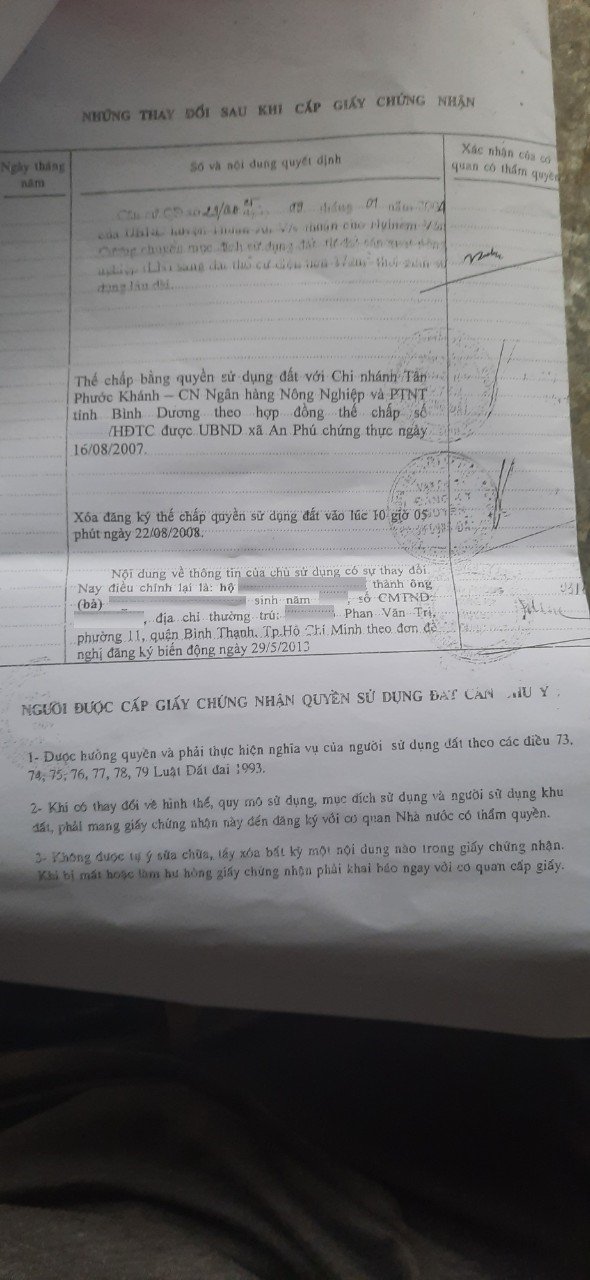 NHỮNG THAY ĐỔI SAU KHI CẤP GIẤY CHỨNG NHẬN
Ngày tháng năm
Số và nội dung quyết định
Xác nhận của cơ quan có thẩm quyền
Căn cứ QĐ số tháng 01 năm
chuyển mục đích sử dụng đất từ đất
sang đất thổ cư diện
dụng lâu dài.
Thế chấp bằng quyền sử dụng đất với Chi nhánh Tân
Phước Khánh – CN Ngân hàng Nông Nghiệp và PTNT
tỉnh Bình Dương theo hợp đồng thế chấp số
/HĐTC được UBND xã An Phú chứng thực ngày
16/08/2007.
Xóa đăng ký thế chấp quyền sử dụng đất vào lúc 10 giờ 05
phút ngày 22/08/2008.
Nội dung về thông tin của chủ sử dụng có sự thay đổi.
Nay điều chỉnh lại là: hộ thành ông
(bà) sinh năm , số CMTND:
, địa chỉ thường trú: Phan Văn Trị,
phường 11, quận Bình Thạnh, Tp.Hồ Chí Minh theo đơn đề
nghị đăng ký biến động ngày 29/5/2013
NGƯỜI ĐƯỢC CẤP GIẤY CHỨNG NHẬN QUYỀN SỬ DỤNG ĐẤT CẦN CHÚ Ý :
1- Được hưởng quyền và phải thực hiện nghĩa vụ của người sử dụng đất theo các điều 73,
74, 75, 76, 77, 78, 79 Luật Đất đai 1993.
2- Khi có thay đổi về hình thể, quy mô sử dụng, mục đích sử dụng và người sử dụng khu
đất, phải mang giấy chứng nhận này đến đăng ký với cơ quan Nhà nước có thẩm quyền.
3- Không được tự ý sửa chữa, tẩy xóa bất kỳ một nội dung nào trong giấy chứng nhận.
Khi bị mất hoặc làm hư hỏng giấy chứng nhận phải khai báo ngay với cơ quan cấp giấy.